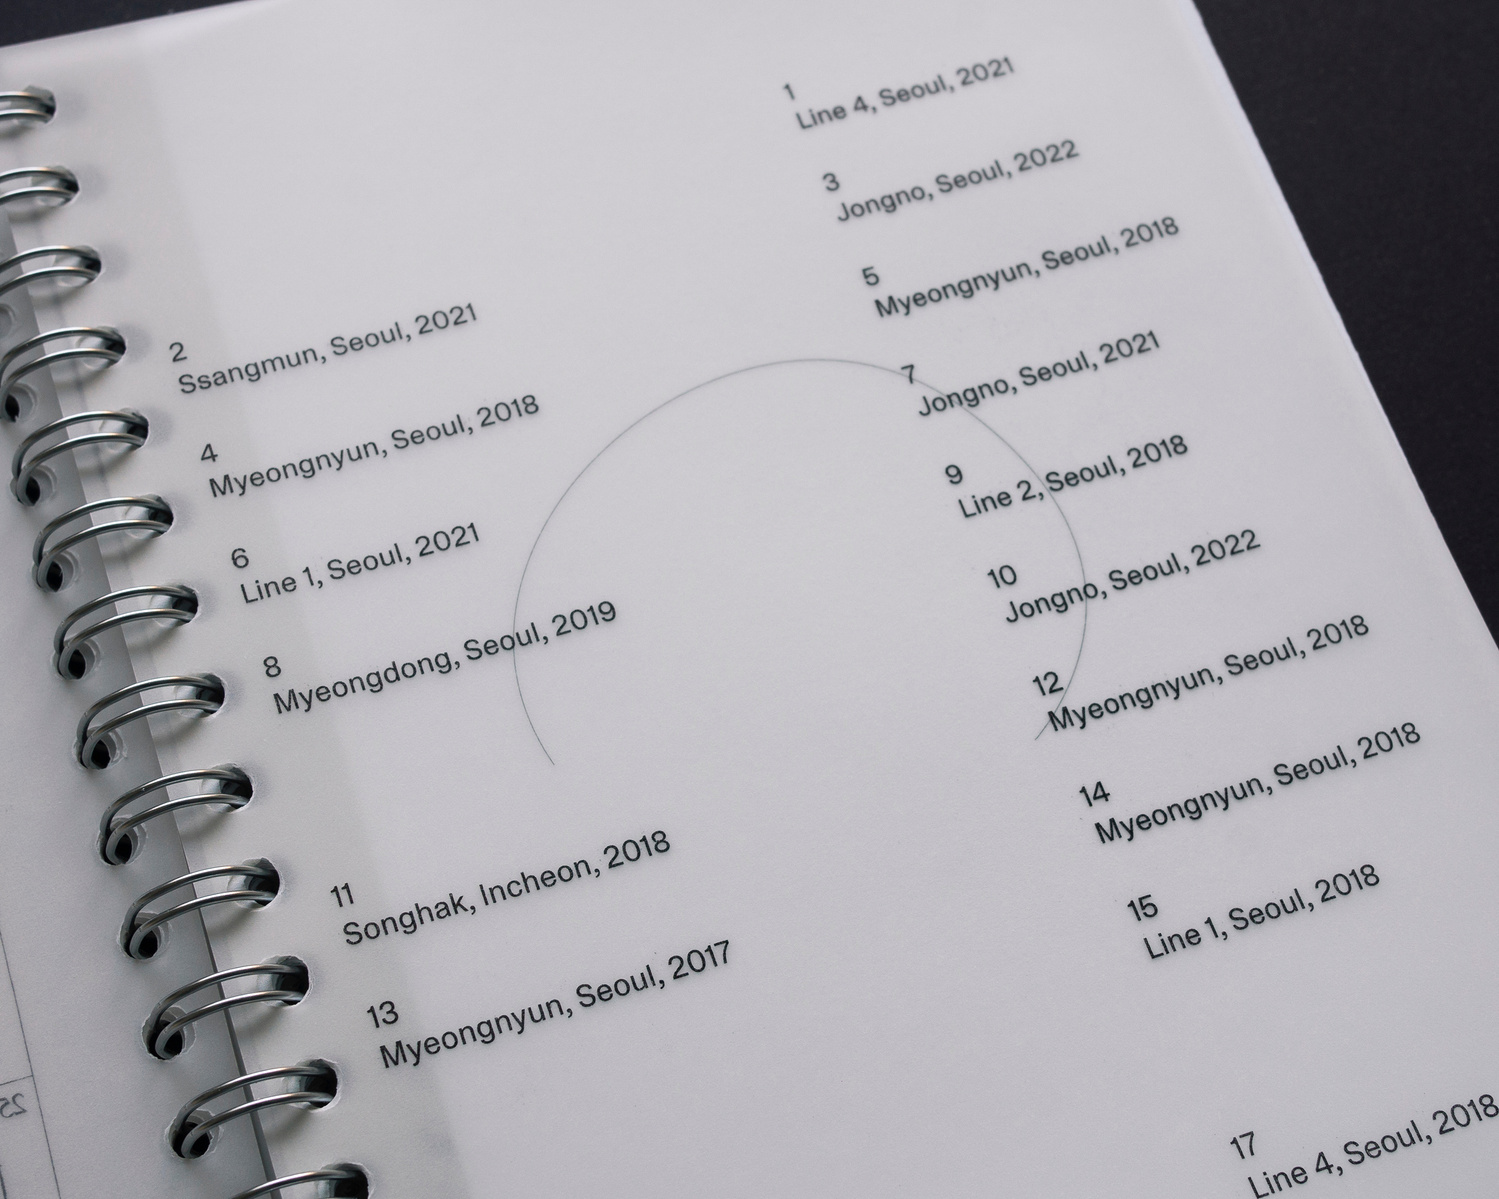 1
Line 4, Seoul, 2021
2
Ssangmun, Seoul, 2021
3
Jongno, Seoul, 2022
4
Myeongnyun, Seoul, 2018
5
Myeongnyun, Seoul, 2018
6
Line 1, Seoul, 2021
7
Jongno, Seoul, 2021
8
Myeongdong, Seoul, 2019
9
Line 2, Seoul, 2018
10
Jongno, Seoul, 2022
11
Songhak, Incheon, 2018
12
Myeongnyun, Seoul, 2018
13
Myeongnyun, Seoul, 2017
14
Myeongnyun, Seoul, 2018
15
Line 1, Seoul, 2018
17
Line 4, Seoul, 2018
25